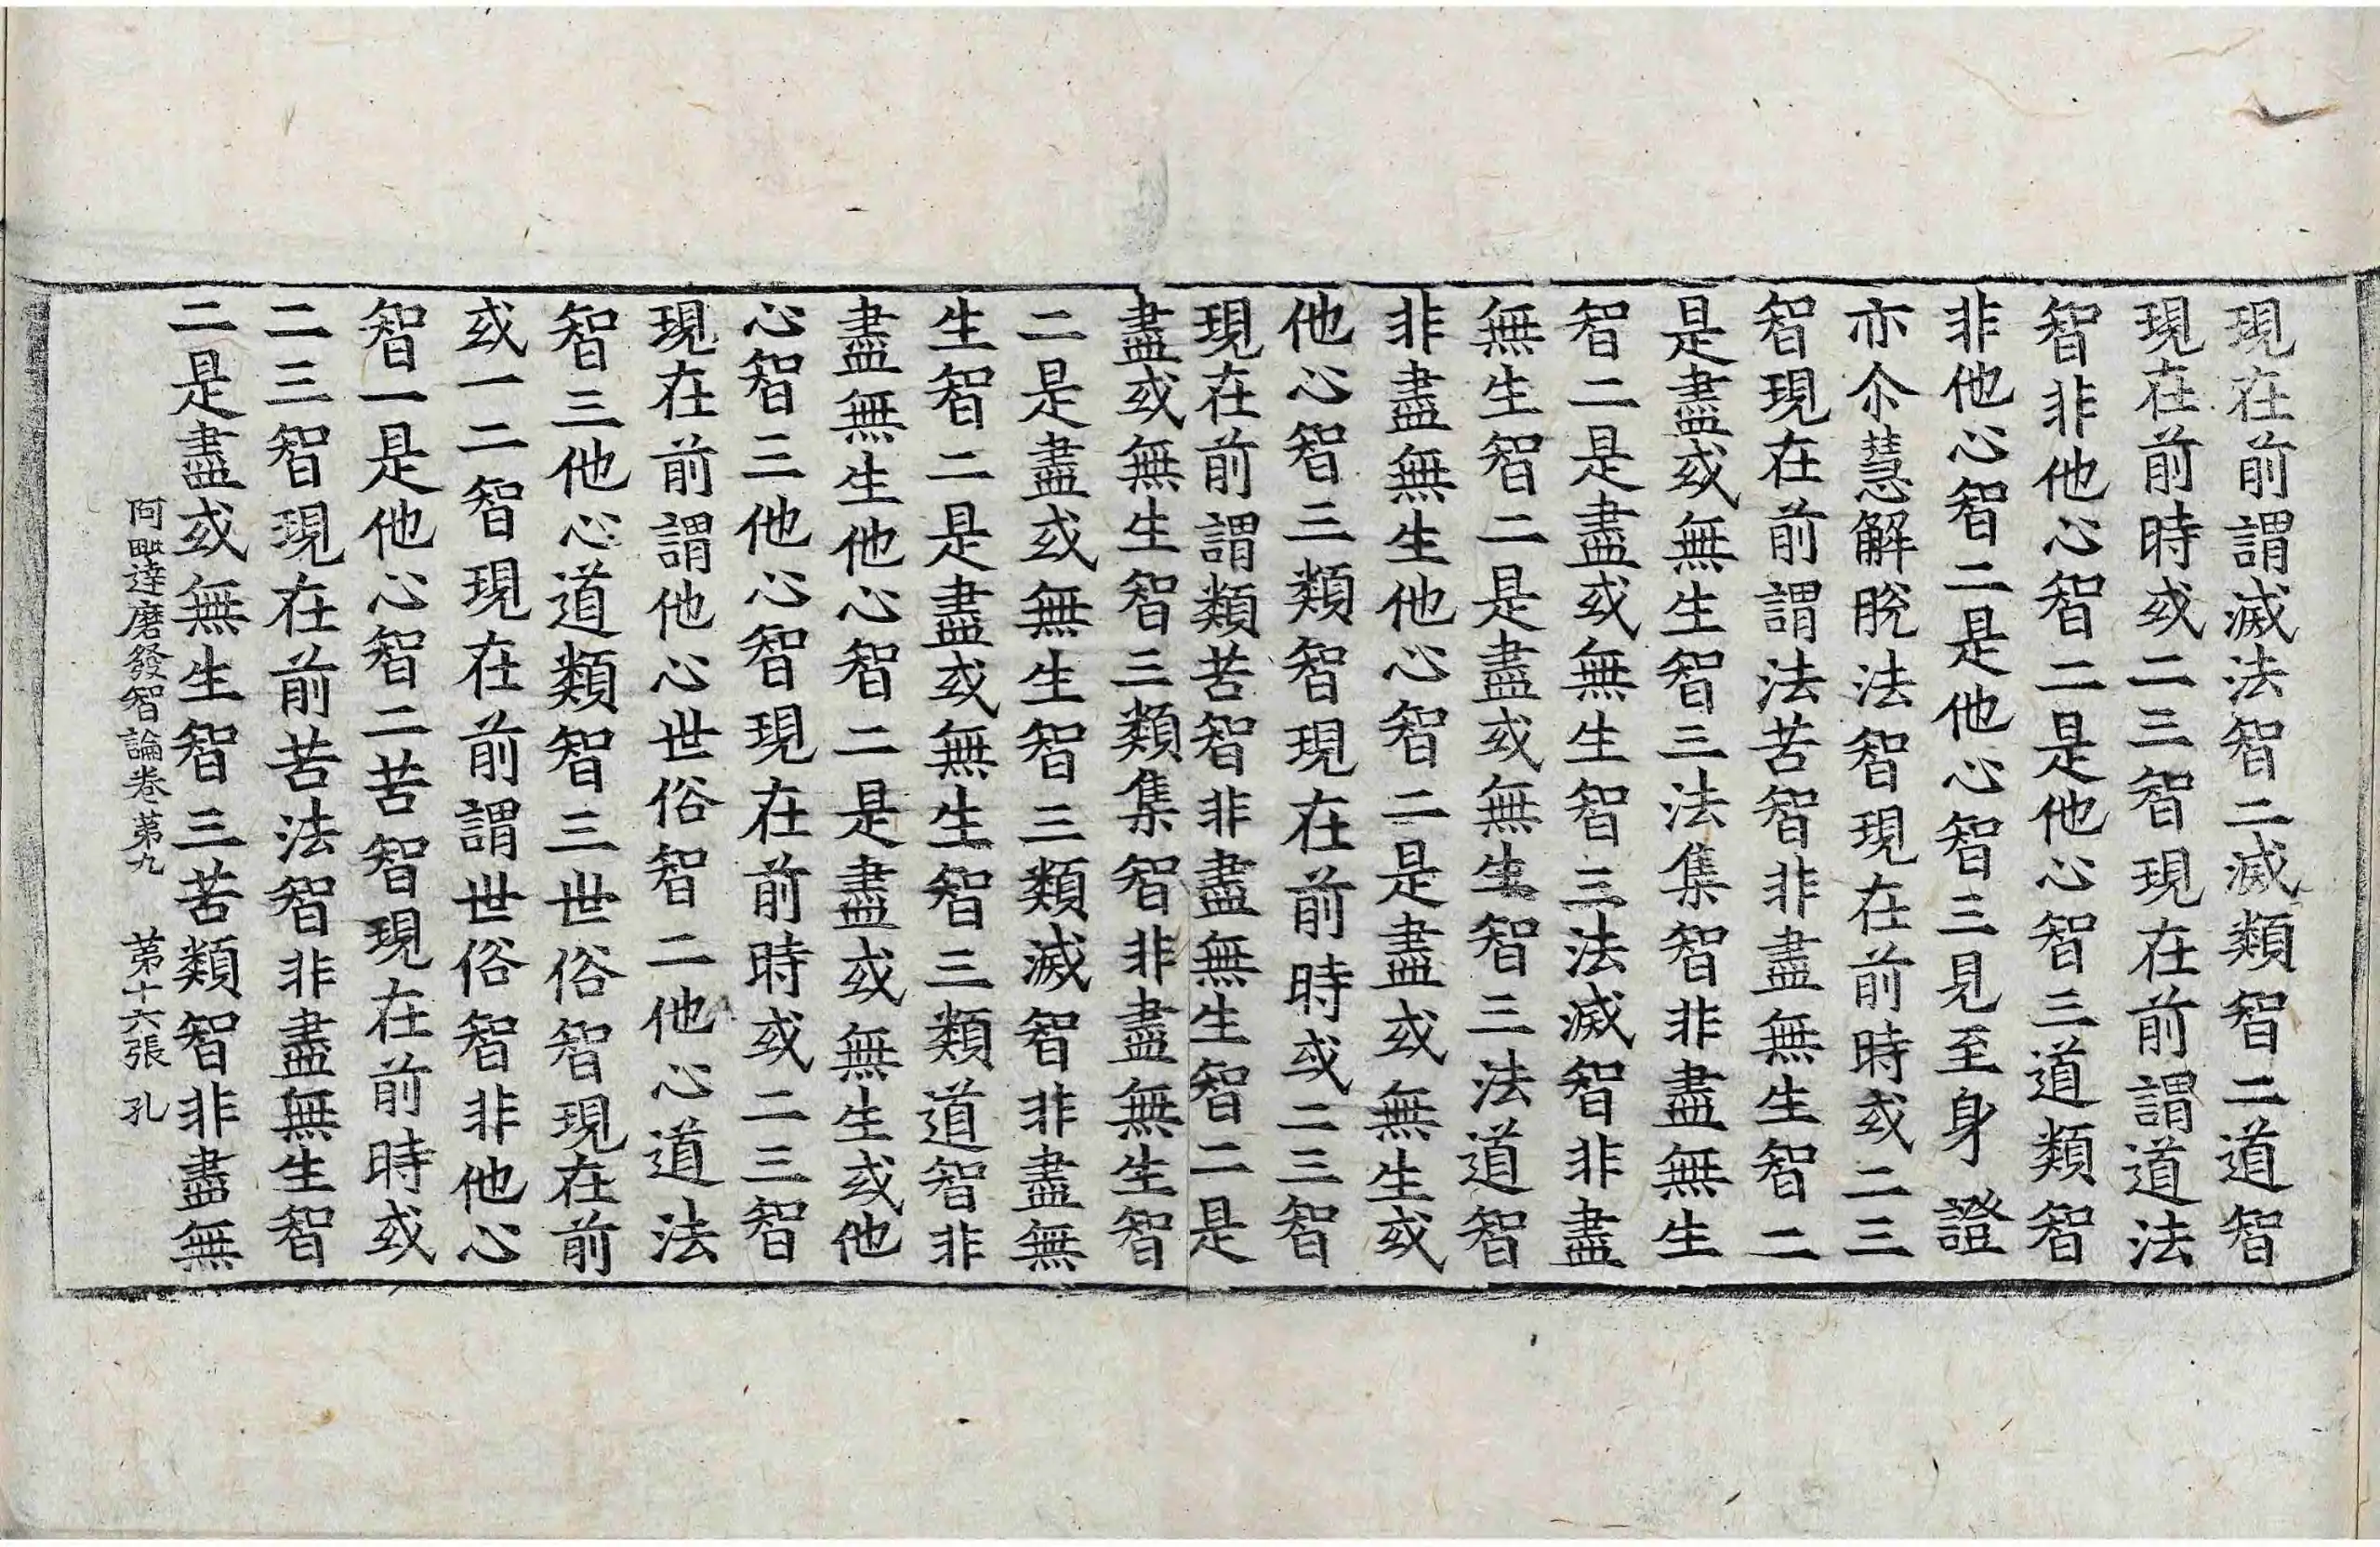 現在前謂滅法智二滅類智二道智
現在前時或二三智現在前謂道法
智非他心智二是他心智三道類智
非他心智二是他心智三見至身證
亦尒慧解脫法智現在前時或二三
智現在前謂法苦智非盡無生智二
是盡或無生智三法集智非盡無生
智二是盡或無生智三法滅智非盡
無生智二是盡或無生智三法道智
非盡無生他心智二是盡或無生或
他心智三類智現在前時或二三智
現在前謂類苦智非盡無生智二是
盡或無生智三類集智非盡無生智
二是盡或無生智三類滅智非盡無
生智二是盡或無生智三類道智非
盡無生他心智二是盡或無生或他
心智三他心智現在前時或二三智
現在前謂他心世俗智二他心道法
智三他心道類智三世俗智現在前
或一二智現在前謂世俗智非他心
智一是他心智二苦智現在前時或
二三智現在前苦法智非盡無生智
二是盡或無生智三苦類智非盡無
阿毗達磨發智論卷第九 第十六張 孔